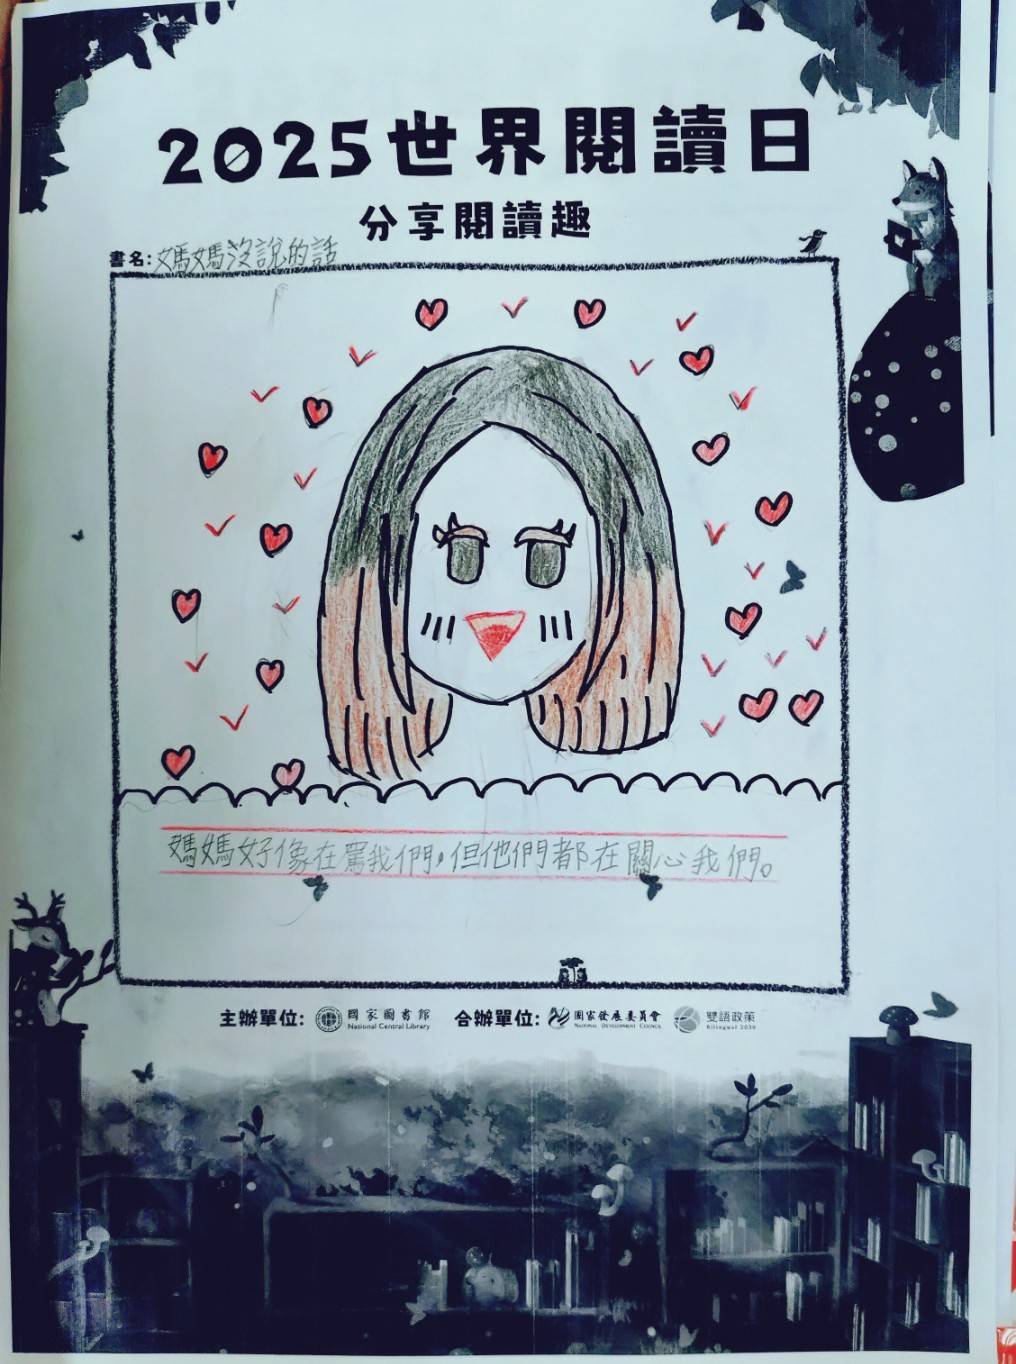 2025世界閱讀日
分享閱讀趣
書名:媽媽沒說的話
媽媽好像在罵我們,但他們都在關心我們。
主辦單位: 國家圖書館 National Central Library 合辦單位: 國家發展委員會 National Development Council 雙語政策 Bilingual 2030